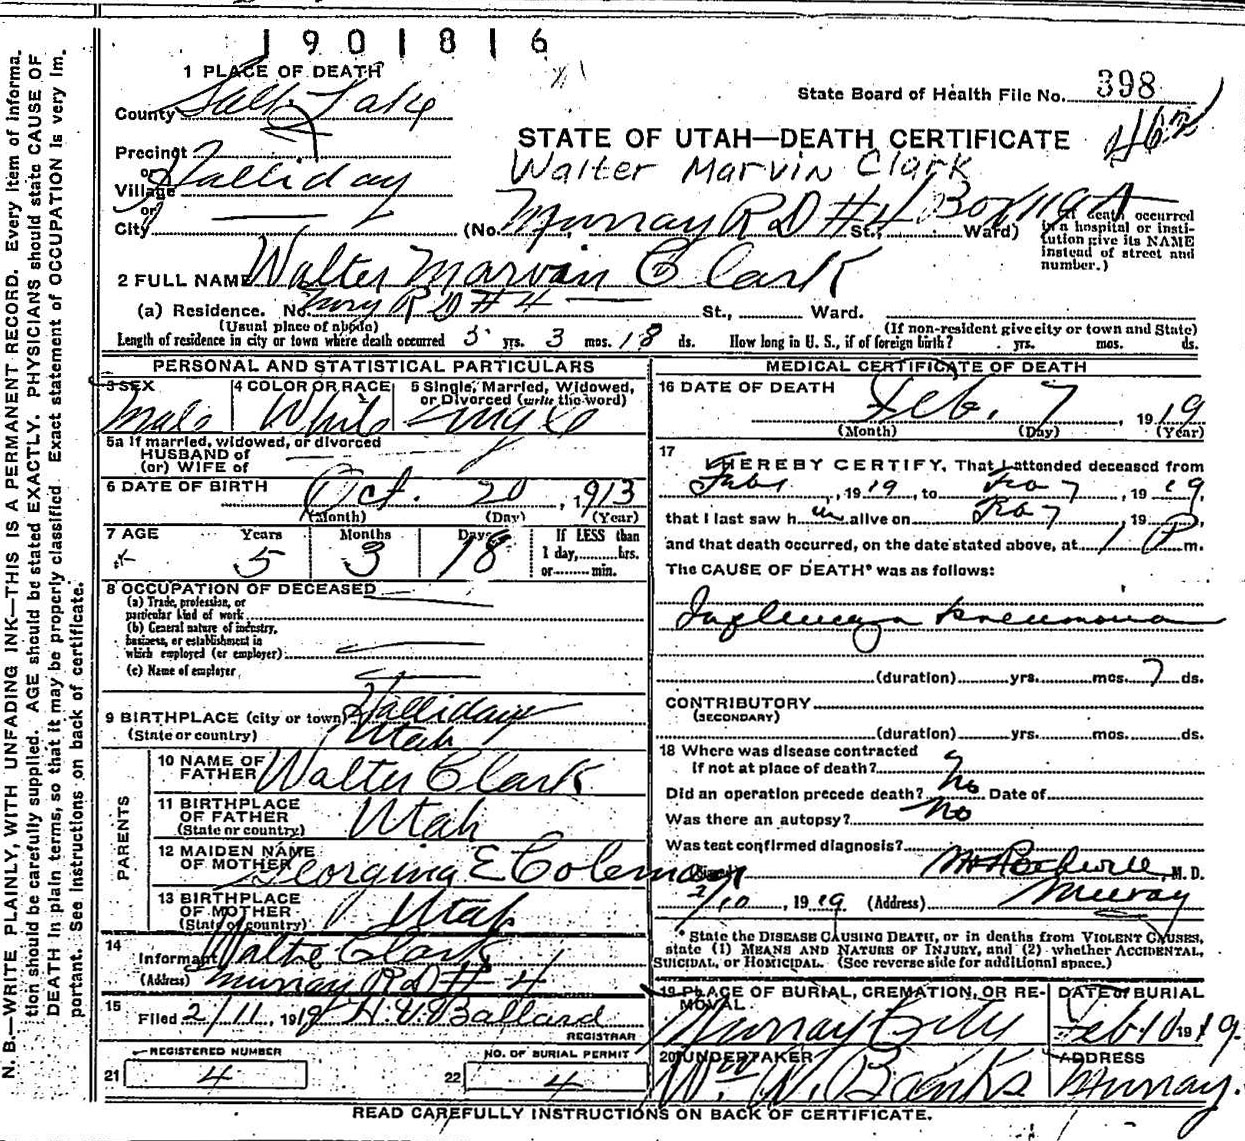 1 9 0 1 8 1 6
1 PLACE OF DEATH
County Salt Lake
Precinct
or
Village Halliday
or
City
State Board of Health File No. 398
462
STATE OF UTAH—DEATH CERTIFICATE
Walter Marvin Clark
(No. Murray R D #4 Box 119 A St., Ward)
(If death occurred in a hospital or institution give its NAME instead of street and number.)
2 FULL NAME Walter Marvin Clark
(a) Residence. No. R D #4 St., Ward.
(Usual place of abode) (If non-resident give city or town and State)
Length of residence in city or town where death occurred 5 yrs. 3 mos. 18 ds. How long in U. S., if of foreign birth? yrs. mos. ds.
PERSONAL AND STATISTICAL PARTICULARS
3 SEX Male
4 COLOR OR RACE White
5 Single, Married, Widowed, or Divorced (write the word) Single
5a If married, widowed, or divorced
HUSBAND of
(or) WIFE of
6 DATE OF BIRTH Oct. 20, 1913
(Month) (Day) (Year)
7 AGE Years 5 Months 3 Days 18
If LESS than
1 day, hrs.
or min.
8 OCCUPATION OF DECEASED
(a) Trade, profession, or
particular kind of work
(b) General nature of industry,
business, or establishment in
which employed (or employer)
(c) Name of employer
9 BIRTHPLACE (city or town) Halliday
(State or country) Utah
PARENTS
10 NAME OF FATHER Walter Clark
11 BIRTHPLACE OF FATHER Utah
(State or country)
12 MAIDEN NAME OF MOTHER Georgina E Coleman
13 BIRTHPLACE OF MOTHER Utah
(State or country)
14 Informant Walter Clark
(Address) Murray R D #4
15 Filed 2/11, 1919 H. V. Ballard
REGISTRAR
21 REGISTERED NUMBER 4
22 NO. OF BURIAL PERMIT 4
MEDICAL CERTIFICATE OF DEATH
16 DATE OF DEATH Feb. 7, 1919
(Month) (Day) (Year)
17 I HEREBY CERTIFY, That I attended deceased from
Feb 1, 1919, to Feb 7, 1919,
that I last saw him alive on Feb 7, 19
and that death occurred, on the date stated above, at 1 P m.
The CAUSE OF DEATH* was as follows:
Influenza Pneumonia
(duration) yrs. mos. 7 ds.
CONTRIBUTORY
(SECONDARY)
(duration) yrs. mos. ds.
18 Where was disease contracted
if not at place of death? ?
Did an operation precede death? No Date of
Was there an autopsy? No
Was test confirmed diagnosis?
(Signed) Rockwell, M. D.
2/10, 1919 (Address) Murray
*State the DISEASE CAUSING DEATH, or in deaths from VIOLENT CAUSES,
state (1) MEANS AND NATURE OF INJURY, and (2) whether ACCIDENTAL,
SUICIDAL, or HOMICIDAL. (See reverse side for additional space.)
19 PLACE OF BURIAL, CREMATION, OR REMOVAL Murray City
DATE of BURIAL Feb 10 1919
20 UNDERTAKER Wm W. Banks
ADDRESS Murray.
READ CAREFULLY INSTRUCTIONS ON BACK OF CERTIFICATE.
N. B.—WRITE PLAINLY, WITH UNFADING INK—THIS IS A PERMANENT RECORD. Every item of informa-
tion should be carefully supplied. AGE should be stated EXACTLY. PHYSICIANS should state CAUSE OF
DEATH in plain terms, so that it may be properly classified. Exact statement of OCCUPATION is very im-
portant. See instructions on back of certificate.